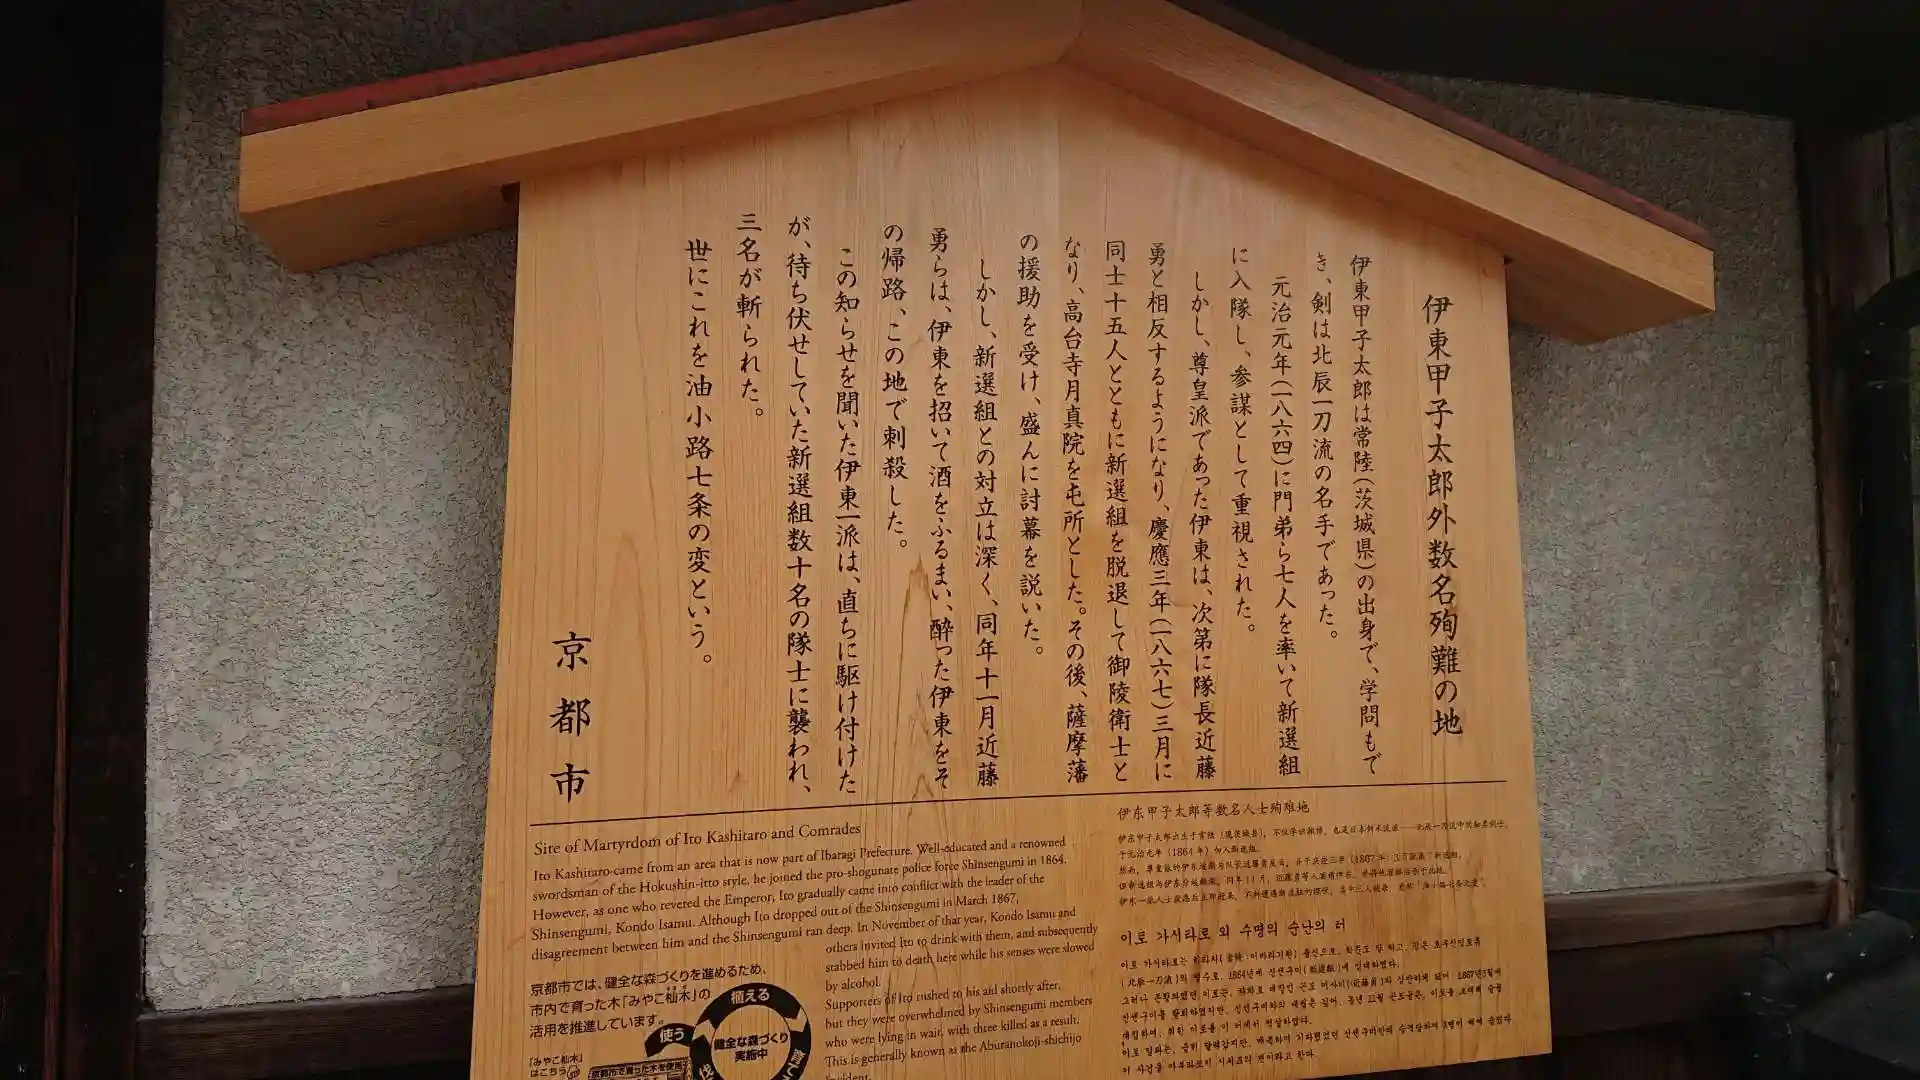 伊東甲子太郎外数名殉難の地
伊東甲子太郎は常陸(茨城県)の出身で、学問もで
き、剣は北辰一刀流の名手であった。
元治元年(一八六四)に門弟ら七人を率いて新選組
に入隊し、参謀として重視された。
しかし、尊皇派であった伊東は、次第に隊長近藤
勇と相反するようになり、慶應三年(一八六七)三月に
同士十五人とともに新選組を脱退して御陵衛士と
なり、高台寺月真院を屯所とした。その後、薩摩藩
の援助を受け、盛んに討幕を説いた。
しかし、新選組との対立は深く、同年十一月近藤
勇らは、伊東を招いて酒をふるまい、酔った伊東をそ
の帰路、この地で刺殺した。
この知らせを聞いた伊東一派は、直ちに駆け付けた
が、待ち伏せしていた新選組数十名の隊士に襲われ、
三名が斬られた。
世にこれを油小路七条の変という。
京都市
Site of Martyrdom of Ito Kashitaro and Comrades
Ito Kashitaro came from an area that is now part of Ibaragi Prefecture. Well-educated and a renowned
swordsman of the Hokushin-itto style, he joined the pro-shogunate police force Shinsengumi in 1864.
However, as one who revered the Emperor, Ito gradually came into conflict with the leader of the
Shinsengumi, Kondo Isamu. Although Ito dropped out of the Shinsengumi in March 1867,
disagreement between him and the Shinsengumi ran deep. In November of that year, Kondo Isamu and
others invited Ito to drink with them, and subsequently
stabbed him to death here while his senses were slowed
by alcohol.
Supporters of Ito rushed to his aid shortly after,
but they were overwhelmed by Shinsengumi members
who were lying in wait, with three killed as a result.
This is generally known as the Aburanokoji-shichijo
京都市では、健全な森づくりを進めるため、
市内で育った木「みやこ杣木」の
活用を推進しています。
「みやこ杣木」
はこちら
植える
使う
健全な森づくり
実施中
伊东甲子太郎等数名人士殉难地
于元治元年(1864年)加入新选组。
이토 가시타로 외 수명의 순난의 터